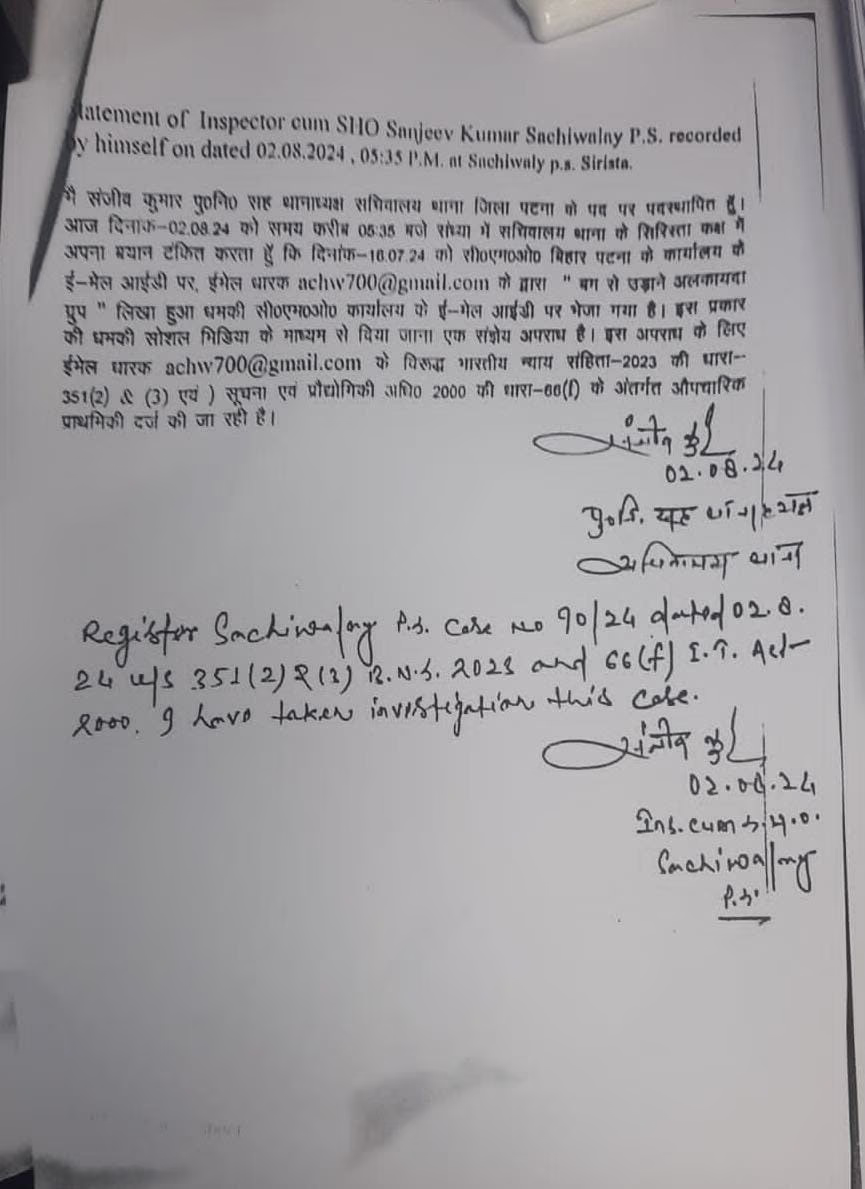 tatement of Inspector cum SHO Sanjeev Kumar Sachiwalay P.S. recorded
by himself on dated 02.08.2024 , 05:35 P.M. at Sachiwaly p.s. Sirista.
मैं संजीव कुमार पु०नि० सह थानाध्यक्ष सचिवालय थाना जिला पटना के पद पर पदस्थापित हूँ।
आज दिनांक-02.08.24 को समय करीब 05:35 बजे संध्या में सचिवालय थाना के सिरिस्ता कक्ष में
अपना बयान टंकित करता हूँ कि दिनांक-16.07.24 को सी०एम०ओ० बिहार पटना के कार्यालय के
ई-मेल आईडी पर, ईमेल धारक achw700@gmail.com के द्वारा " बम से उड़ाने अलकायदा
ग्रुप " लिखा हुआ धमकी सी०एम०ओ० कार्यालय के ई-मेल आईडी पर भेजा गया है। इस प्रकार
की धमकी सोशल मिडिया के माध्यम से दिया जाना एक संज्ञेय अपराध है। इस अपराध के लिए
ईमेल धारक achw700@gmail.com के विरूद्ध भारतीय न्याय संहिता-2023 की धारा-
351(2) & (3) एवं ) सूचना एवं प्रौद्योगिकी अधि० 2000 की धारा-66(f) के अंतर्गत औपचारिक
प्राथमिकी दर्ज की जा रही है।
संजीव कु
02.08.24
पु०नि. सह थानाध्यक्ष
सचिवालय थाना
Register Sachiwalay P.S. Case No 90/24 dated 02.8.
24 u/s 351(2) & (3) B.N.S. 2023 and 66(f) I.T. Act-
2000. I have taken investigation this case.
संजीव कु
02.08.24
Ins. cum S.H.O.
Sachiwalay
P.S.